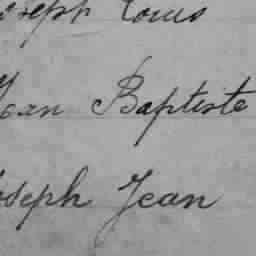 Joseph Louis
Jean Baptiste
Joseph Jean